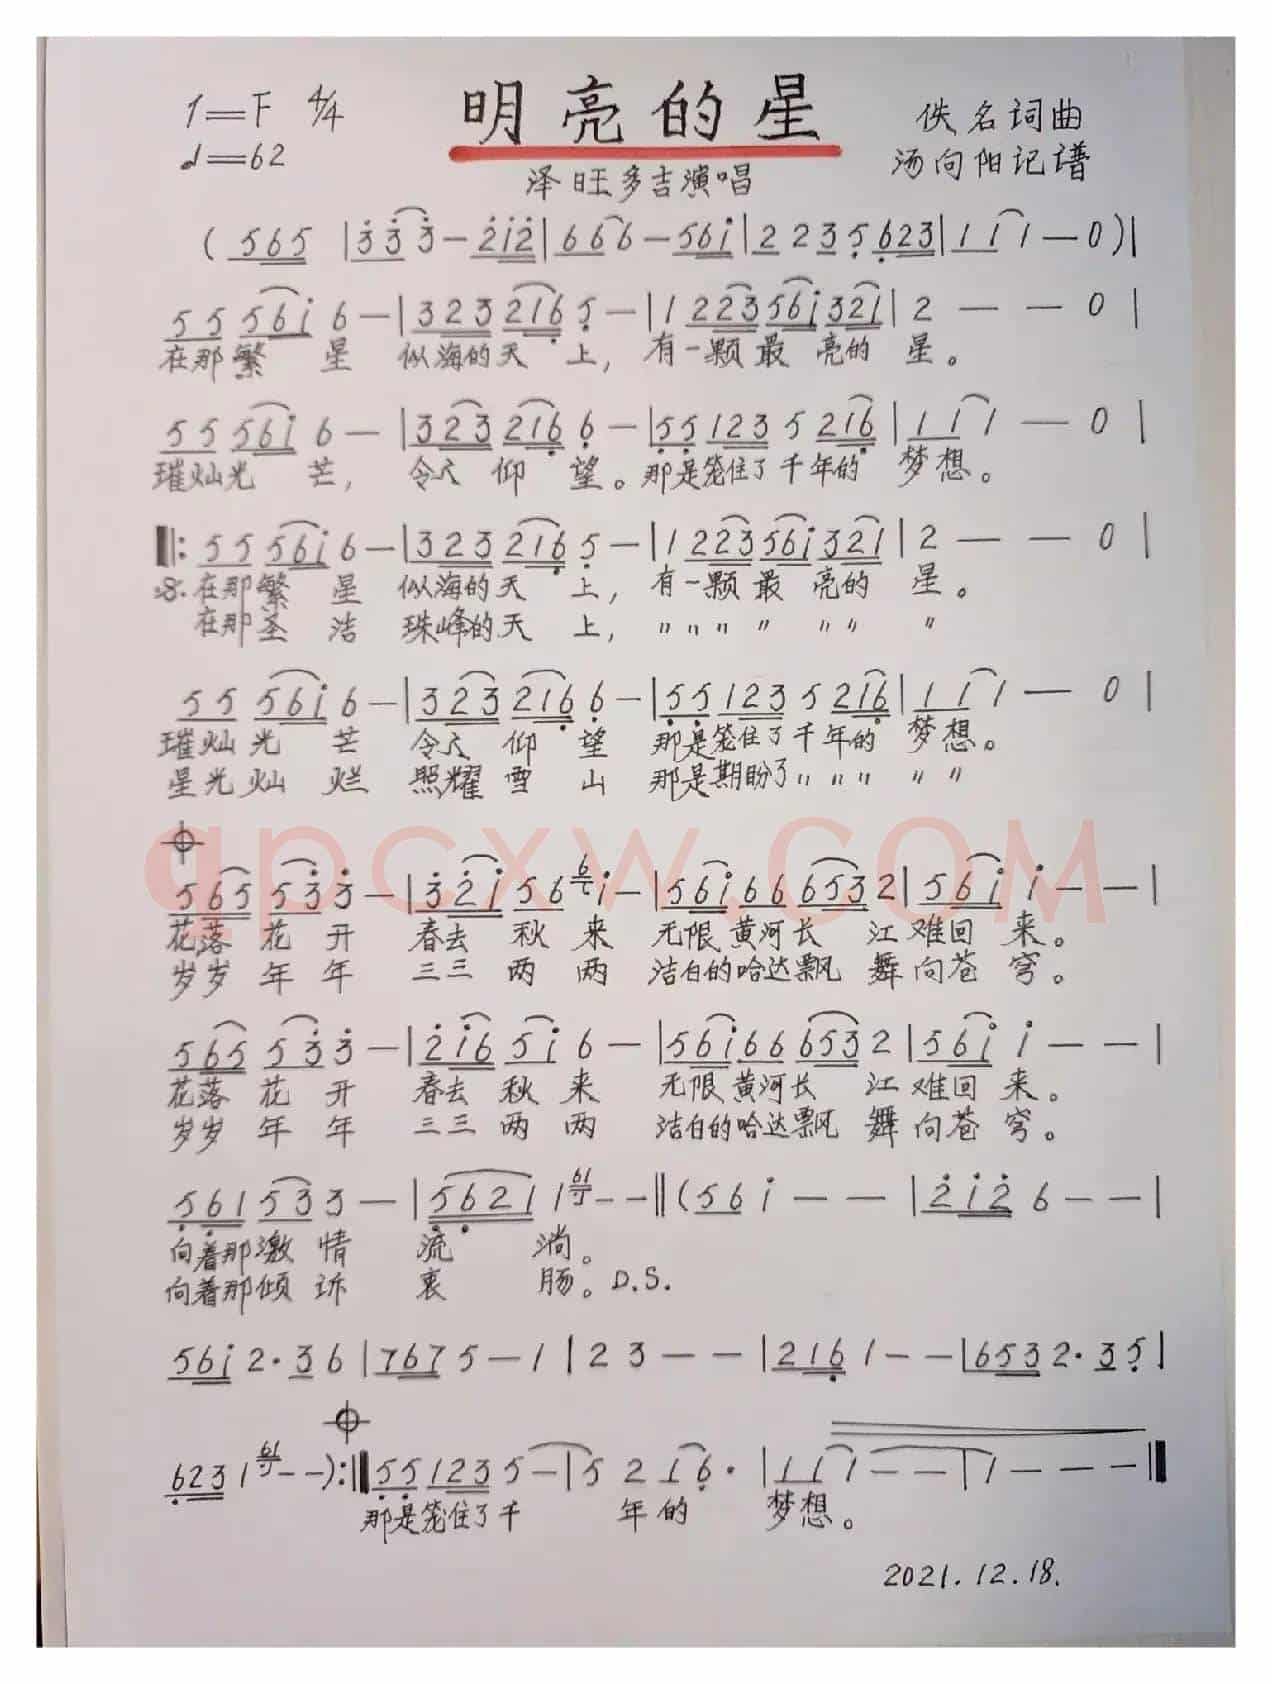 1=F 4/4
♩=62
明亮的星
佚名词曲
汤向阳记谱
泽旺多吉演唱
( 565 | 333 — 212 | 666 — 561 | 2 2 3 5 623 | 1 1 1 — 0 ) |
5 5 561 6 — | 323 216 5 — | 1 223 561 321 | 2 — — 0 |
在那繁 星 似海的天 上, 有一颗最 亮的 星。
5 5 561 6 — | 323 216 6 — | 55 123 5 216 | 1 1 1 — 0 |
璀灿光 芒, 令人 仰 望。那是笼住了千年的 梦想。
‖: 5 5 561 6 — | 323 216 5 — | 1 223 561 321 | 2 — — 0 |
在那繁 星 似海的天 上, 有一颗最 亮的 星。
在那圣 洁 珠峰的天 上, 〃〃〃 〃 〃〃 〃
5 5 561 6 — | 323 216 6 — | 55 123 5 216 | 1 1 1 — 0 |
璀灿光 芒 令人 仰 望 那是笼住了千年的 梦想。
星光灿 烂 照耀 雪 山 那是期盼了〃〃〃 〃〃
qpcxw.COM
565 533 — | 321 56 1 — | 561 66 6532 | 561 1 — — |
花落 花 开 春去 秋 来 无限黄河长 江难回 来。
岁岁 年 年 三三 两 两 洁白的哈达飘 舞向苍 穹。
565 533 — | 216 51 6 — | 561 66 6532 | 561 1 — — |
花落 花 开 春去 秋 来 无限黄河长 江难回 来。
岁岁 年 年 三三 两 两 洁白的哈达飘 舞向苍 穹。
561 533 — | 5621 1 61 — — ‖ ( 56 1 — — | 212 6 — — |
向着那激 情 流 淌。
向着那倾 诉 衷 肠。D.S.
561 2· 3 6 | 767 5 — 1 | 2 3 — — | 216 1 — — | 653 2· 3 5 |
623 1 61 — — ) :‖ 55 123 5 — | 5 2 1 6· | 1 1 1 — — | 1 — — — ‖
那是笼住了千 年的 梦想。
2021.12.18.